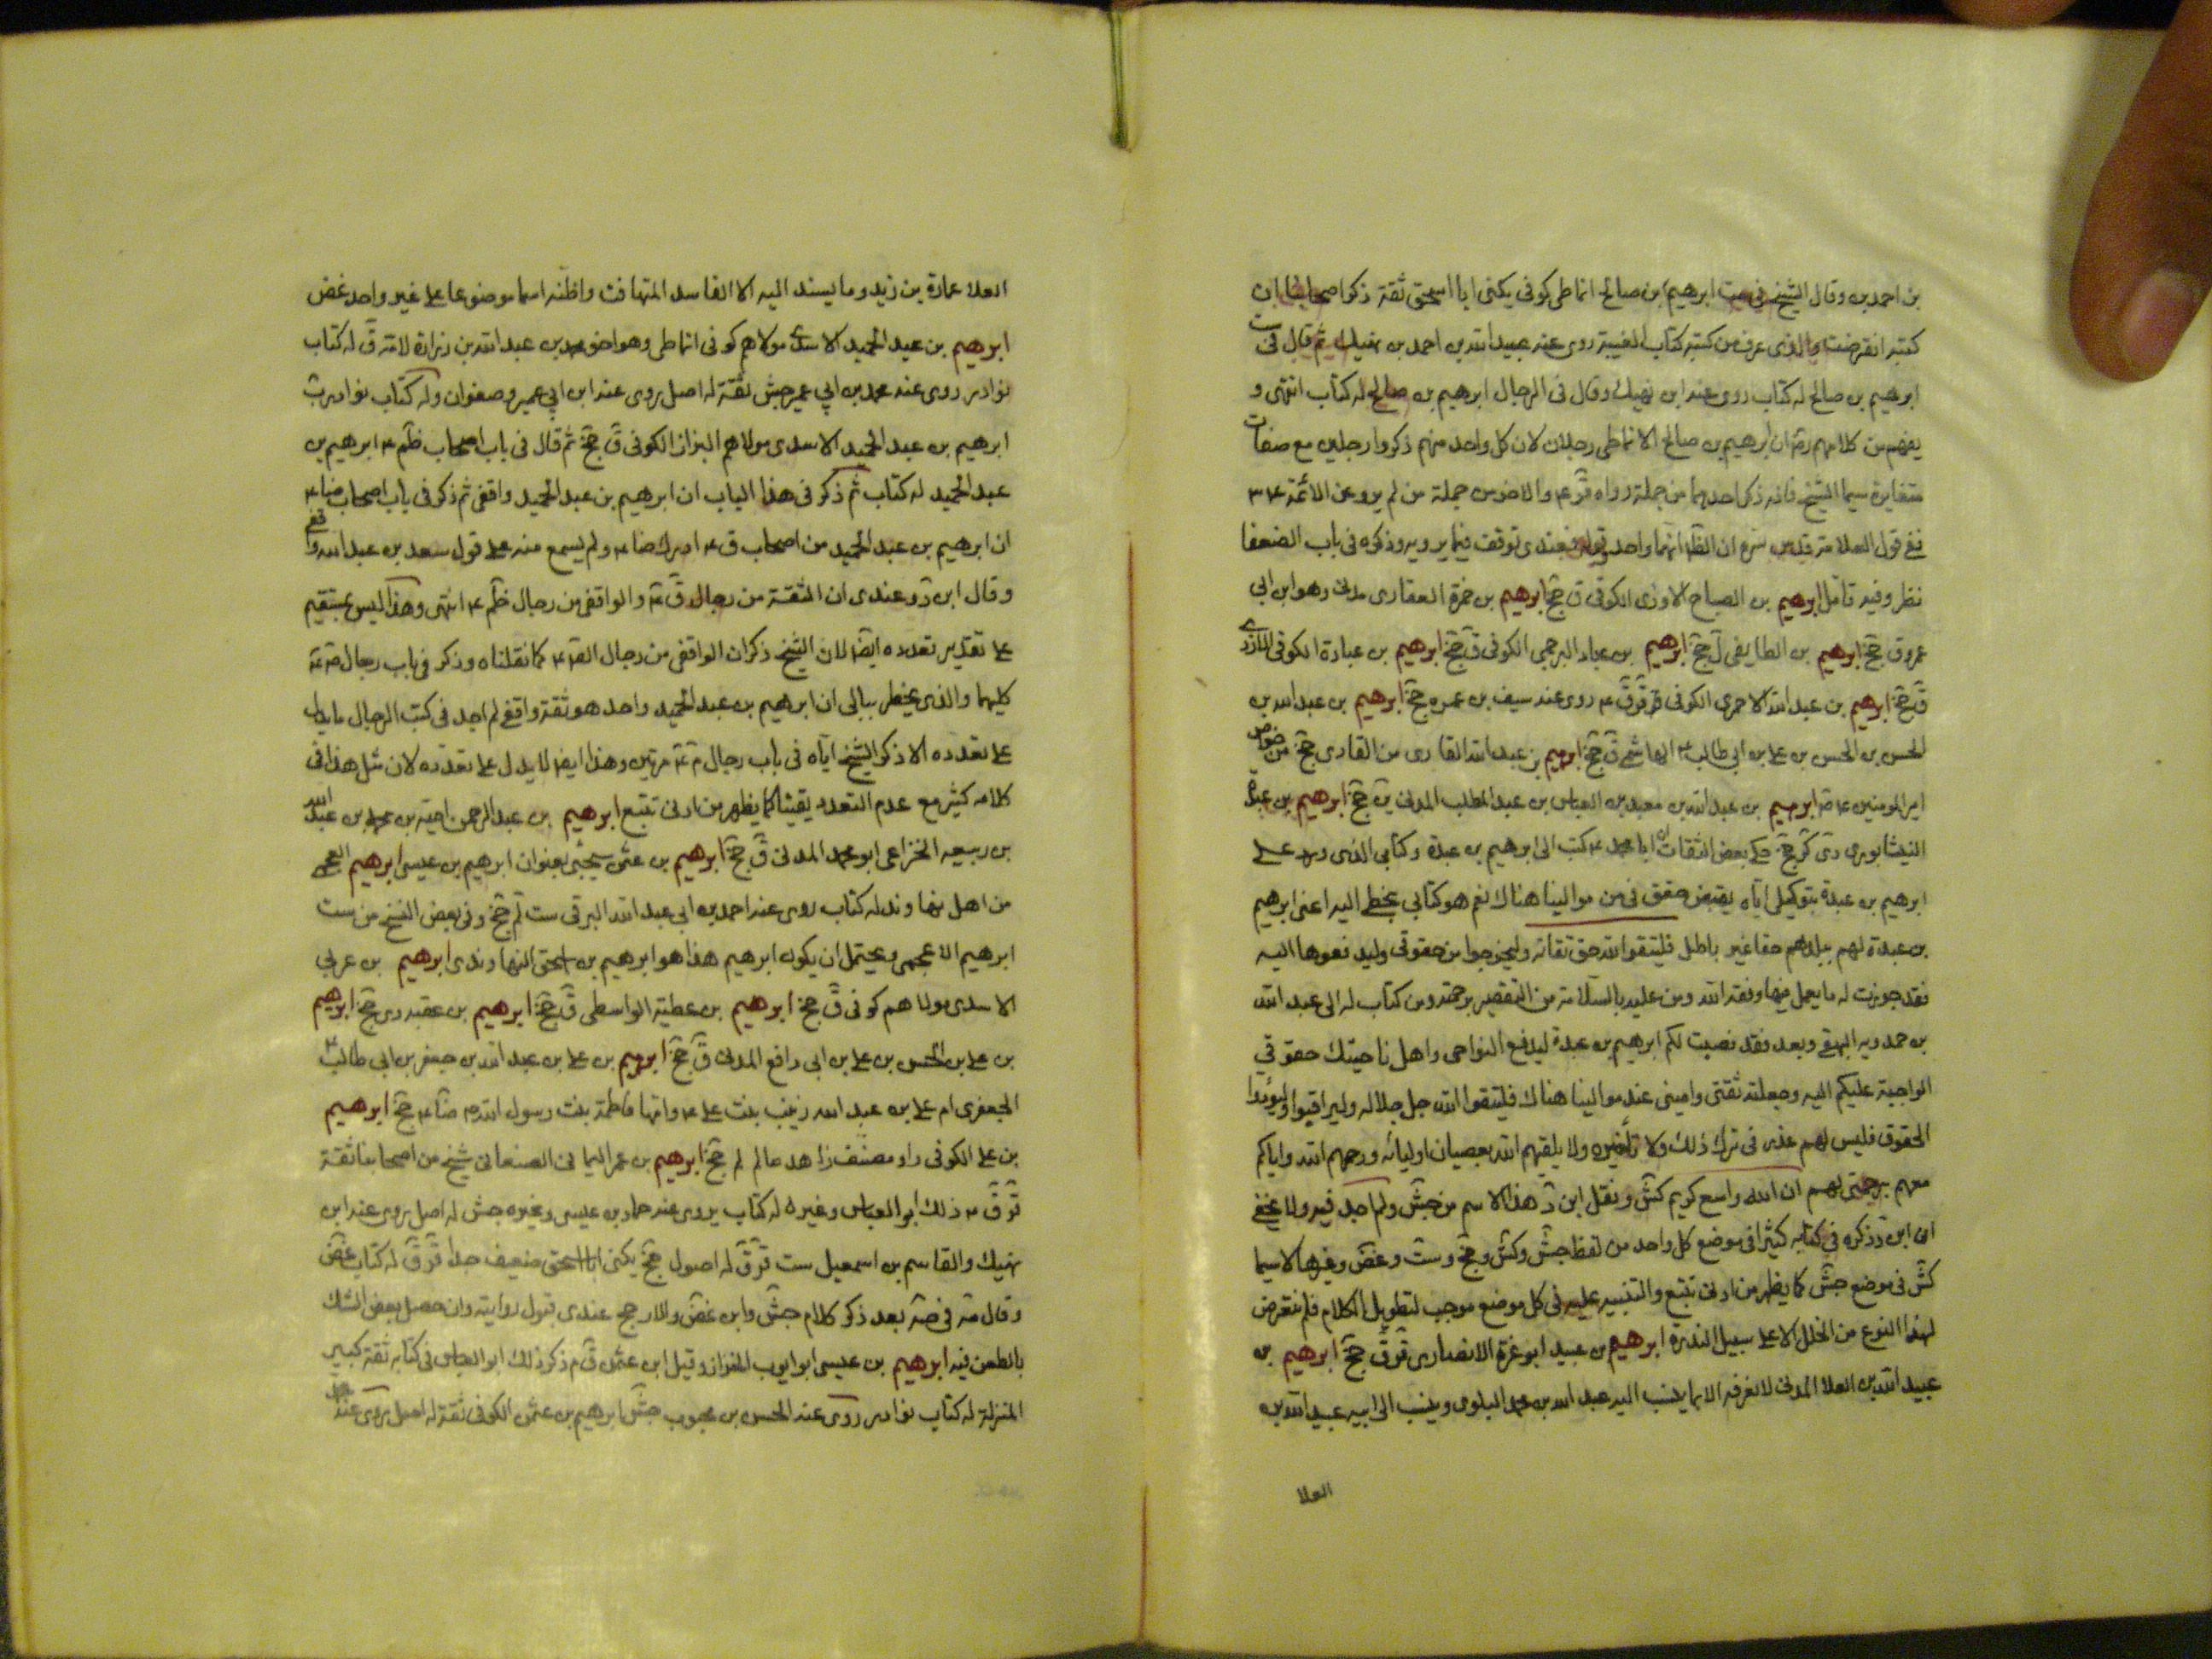 بن احمد بن وقال الشيخ في ست ابرهيم بن صالح انماطى كوفى يكنى ابا اسحق ثقة ذكر اصحابنا ان
كتبه انقرضت والذى عرف من كتبه كتاب الغيبة روى عنه عبيد الله بن احمد بن نهيك ثم قال فى ست
ابرهيم بن صالح له كتاب روى عنه ابن نهيك وقال فى الرجال ابرهيم بن صالح له كتاب انتهى و
يفهم من كلامهم ره ان ابرهيم بن صالح الانماطى رجلان لان كل واحد منهم ذكروا رجلين مع صفات
متغايرة سيما الشيخ فانه ذكر احدهما من جملة رواه قر ع والاخر من جملة من لم يرو عن الائمة ع م
ففى قول العلامة قدس سره ان الظ انهما واحد فعندى توقف فيما يرويه وذكره فى باب الضعفا
نظر وفيه تامل ابرهيم بن الصباح الاودى الكوفى ق جخ ابرهيم بن ضمرة الغفارى مدنى وهو ابن ابى
عمرو ق جخ ابرهيم بن الطايفى ل جخ ابرهيم بن عباد البرجمى الكوفى ق جخ ابرهيم بن عبادة الكوفى الازدى
ق جخ ابرهيم بن عبد الله الاحمرى الكوفى قر ق ق ع روى عنه سيف بن عميره جخ ابرهيم بن عبد الله بن
الحسن بن الحسن بن على بن ابى طالب ع الهاشمى ق جخ ابرهيم بن عبد الله القارى من القارى جخ من خواص
امير المومنين ع صه ابرهيم بن عبد الله بن معبد بن العباس بن عبد المطلب المدنى ين جخ ابرهيم بن عبدة
النيشابورى دى كر جخ حكى بعض الثقات ان ابا محمد ع كتب الى ابرهيم بن عبدة وكتابى الذى ورد على
ابرهيم بن عبدة بتوكيلى اياه بقبض حقوقى من موالينا هناك نعم هو كتابى بخطى اليه اعنى ابرهيم
بن عبدة لهم ببلدهم حقا غير باطل فليتقوا الله حق تقاته وليخرجوا من حقوقى وليدفعوها اليه
فقد جوزت له ما يعمل فيها وفقه الله ومن عليه بالسلامة من التقصير برحمته ومن كتاب له الى عبد الله
بن حمدويه البيهقى وبعد فقد نصبت لكم ابرهيم بن عبدة ليدفع النواحى واهل ناحيتك حقوقى
الواجبة عليكم اليه وجعلته ثقتى وامينى عند موالينا هناك فليتقوا الله جل جلاله وليراقبوا وليؤدوا
الحقوق فليس لهم عذر فى ترك ذلك ولا تأخيره ولا يلقهم الله بعصيان اوليائه ورحمهم الله واياكم
معهم برحمتى لهم ان الله واسع كريم كش ونقل ابن د هذا الاسم من جش ولم اجد فيه ولا يخفى
ان ابن د ذكره فى كتابه كثيرا فى موضع كل واحد من لفظ جش وكش و جخ و ست و غض وغيرها لا سيما
كش فى موضع جش كما يظهر من ادنى تتبع والتنبيه عليه فى كل موضع موجب لتطويل الكلام فلم نتعرض
لهذا النوع من الخلل الا على سبيل الندرة ابرهيم بن عبيد ابو غرة الانصارى قر ق جخ ابرهيم بن
عبيد الله بن العلا المدنى لا نعرفه الا بما ينسب اليه عبد الله بن محمد البلوى وينسب الى ابيه عبيد الله بن
العلا
العلا عمارة بن زيد وما يسند اليه الا الفاسد المتهافت واظنه اسما موضوعا على غير واحد غض
ابرهيم بن عبد الحميد الاسدى مولاهم كوفى انماطى وهو اخو محمد بن عبد الله بن زرارة لامه ق له كتاب
نوادر روى عنه محمد بن ابي عمير جش ثقة له اصل يروى عنه ابن ابي عمير وصفوان وله كتاب نوادر ست
ابرهيم بن عبد الحميد الاسدى مولاهم البزاز الكوفى ق جخ ثم قال فى باب اصحاب ظم ع ابرهيم بن
عبد الحميد له كتاب ثم ذكر فى هذا الباب ان ابرهيم بن عبد الحميد واقفى ثم ذكر فى باب اصحاب ضا ع
ان ابرهيم بن عبد الحميد من اصحاب ق ع ادرك ضا ع ولم يسمع منه على قول سعد بن عبد الله واقفى
وقال ابن د وعندى ان الثقة من رجال ق ع والواقفى من رجال ظم ع انتهى وهذا ليس بمستقيم
على تقدير تعدده ايضا لان الشيخ ذكر ان الواقفى من رجال الضا ع كما نقلناه وذكر فى باب رجال
كليهما والذى يخطر ببالى ان ابرهيم بن عبد الحميد واحد هو ثقة واقفى لم اجد فى كتب الرجال ما يدل
على تعدده الا ذكر الشيخ اياه فى باب رجال م ع مرتين وهذا ايضا لا يدل على تعدده لان مثل هذا فى
كلامه كثير مع عدم التعدد يقينا كما يظهر من ادنى تتبع ابرهيم بن عبد الرحمن امية بن محمد بن عبد الله
بن ربيعه الخزاعى ابو محمد المدنى ق جخ ابرهيم بن عثمن سيجئ بعنوان ابرهيم بن عيسى ابرهيم العجمى
من اهل نهاوند له كتاب روى عنه احمد بن ابى عبد الله البرقى ست لم جخ وفى بعض النسخ من ست
ابرهيم الاعجمى ويحتمل ان يكون ابرهيم هذا هو ابرهيم بن اسحق النهاوندى ابرهيم بن عربى
الاسدى مولاهم كوفى ق جخ ابرهيم بن عطية الواسطى ق جخ ابرهيم بن عقبه دى جخ ابرهيم
بن على بن الحسن بن على بن ابى رافع المدنى ق جخ ابرهيم بن على بن عبد الله بن جعفر بن ابى طالب ع
الجعفرى ام على بن عبد الله زينب بنت على ع وامها فاطمة بنت رسول الله ص ضا ع جخ ابرهيم
بن على الكوفى راو مصنف زاهد عالم لم جخ ابرهيم بن عمر اليمانى الصنعانى شيخ من اصحابنا ثقة
قر ق ع ذلك ابو العباس وغيره له كتاب يروى عنه حماد بن عيسى وغيره جش له اصل يروى عنه ابن
نهيك والقاسم بن اسمعيل ست قر ق له اصول جخ يكنى ابا اسحق ضعيف جدا قر ق له كتاب غض
وقال مه فى صه بعد ذكر كلام جش وابن غض والارجح عندى قبول روايته وان حصل بعض الشك
بالطعن فيه ابرهيم بن عيسى ابو ايوب الخزاز وقيل ابن عثمن ق م ذكر ذلك ابو العباس فى كتابه ثقة كبير
المنزلة له كتاب نوادر روى عنه الحسن بن محبوب جش ابرهيم بن عثمن الكوفى ثقة له اصل يروى عنه محمد